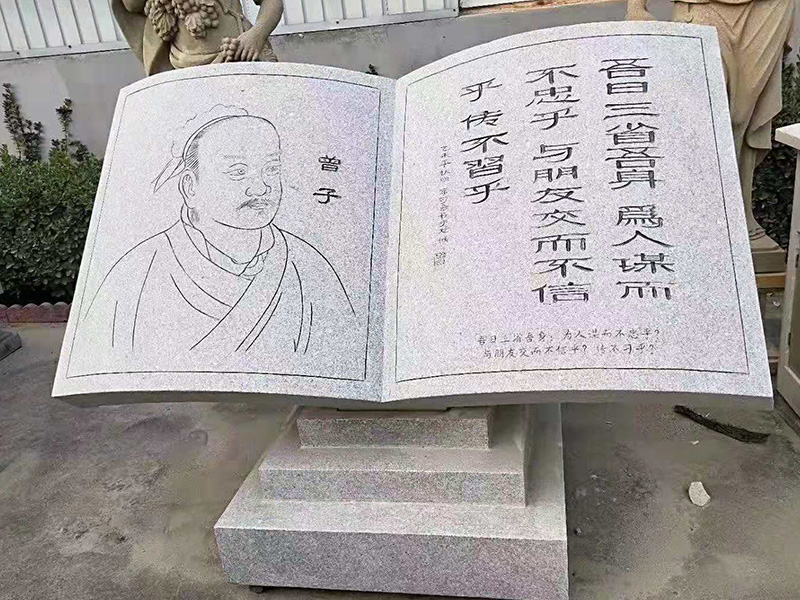 曾子
吾日三省吾身 爲人谋而
不忠乎 与朋友交而不信
乎 传不習乎
吾日三省吾身：为人谋而不忠乎？
与朋友交而不信乎？传不习乎？